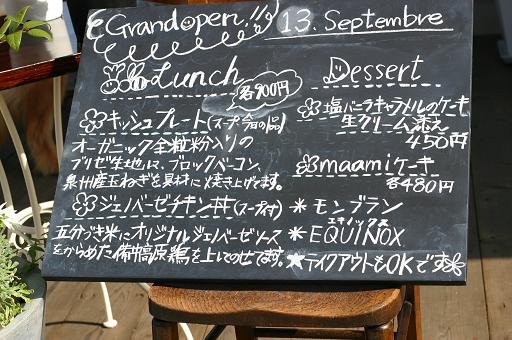 Grand open!!
13. Septembre
Lunch
各900円
キッシュプレート(スープ・今日の1品)
オーガニック全粒粉入りの
ブリゼ生地に、ブロックベーコン、
泉州産玉ねぎを具材に焼き上げてます。
ジェノベーゼチキン丼(スープ付)
五分づき米にオリジナルジェノベーゼソース
をからめた備中高原鶏を上にのせてます。
Dessert
塩バニラキャラメルのケーキ
生クリーム添え
450円
maamiケーキ
各480円
＊モンブラン
エキノックス
＊EQUINOX
★テイクアウトもOKです